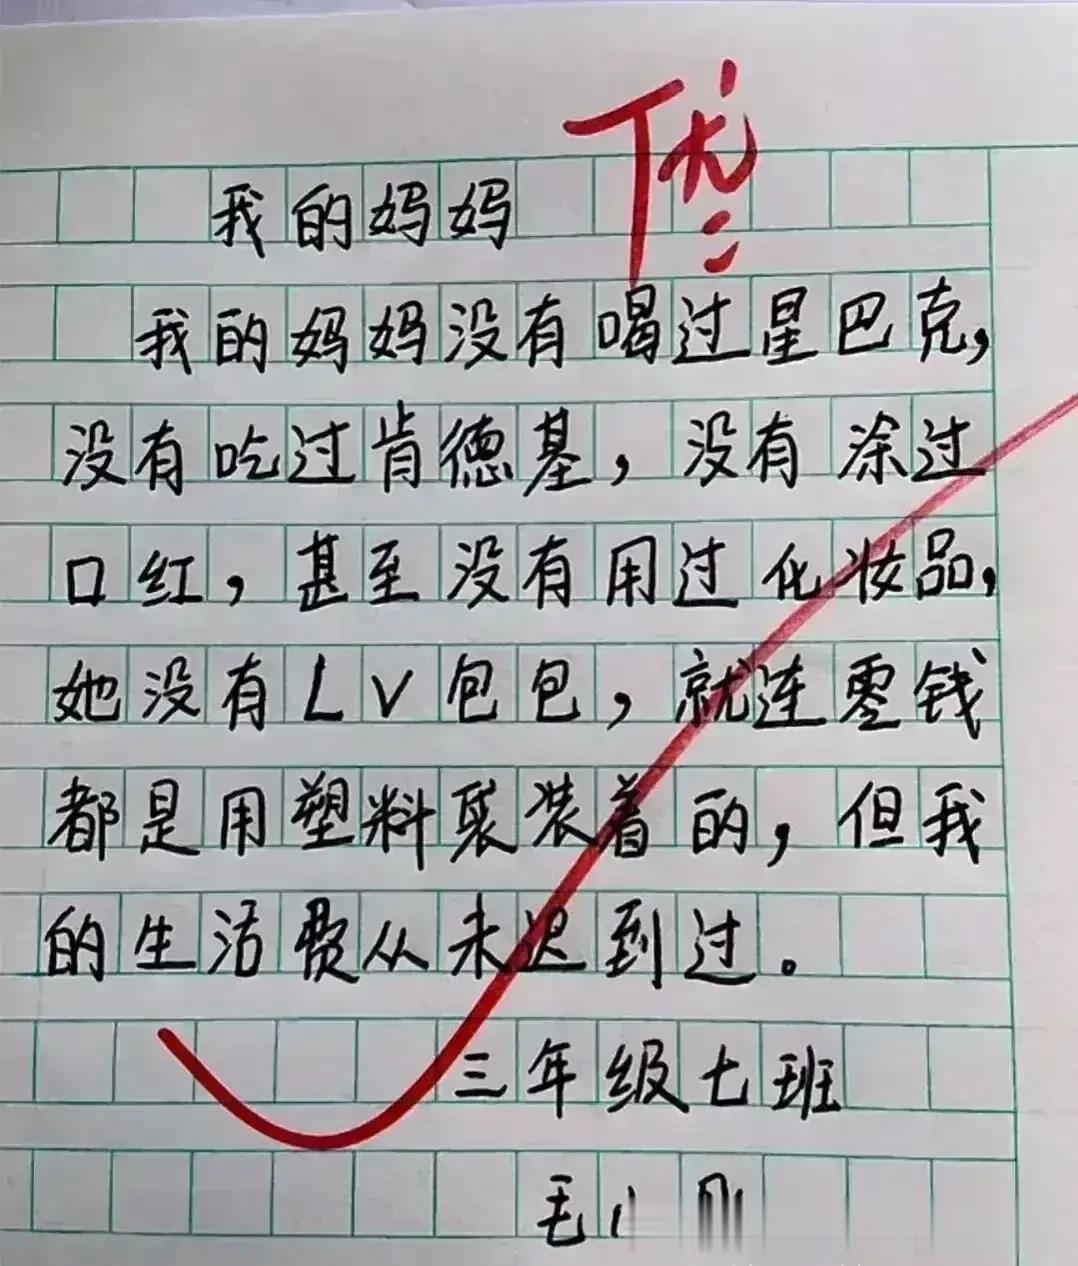 优
我的妈妈
我的妈妈没有喝过星巴克，
没有吃过肯德基，没有涂过
口红，甚至没有用过化妆品，
她没有LV包包，就连零钱
都是用塑料袋装着的，但我
的生活费从未迟到过。
三年级七班
毛小